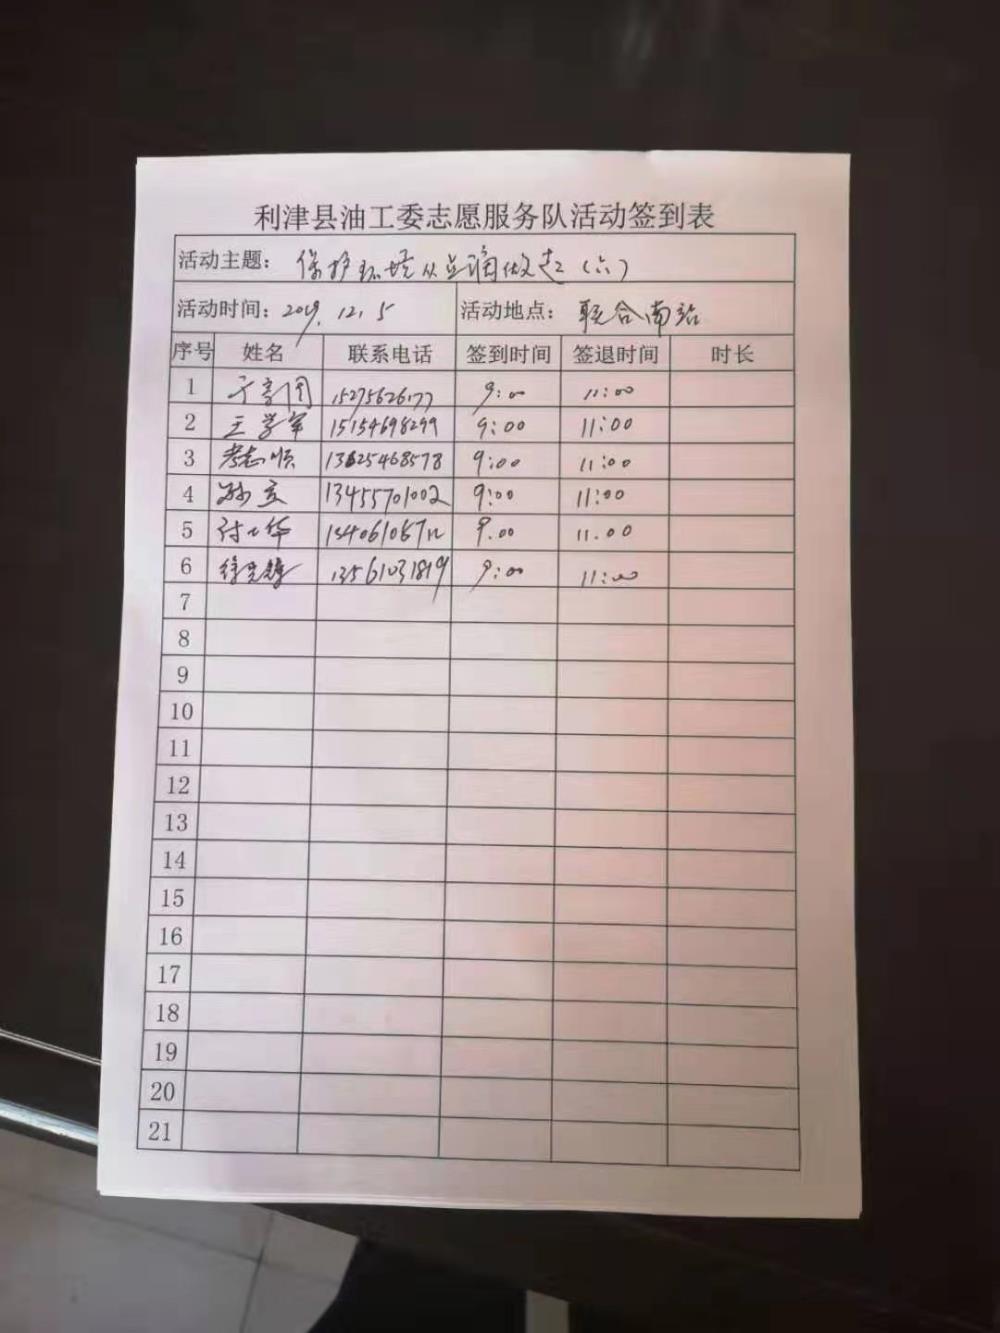 利津县油工委志愿服务队活动签到表
活动主题：保护环境从点滴做起（六）
活动时间：2019.12.5 活动地点：联合南站
序号 姓名 联系电话 签到时间 签退时间 时长
1 15275626177 9:00 11:00
2 王学军 15154698299 9:00 11:00
3 李志顺 13625468578 9:00 11:00
4 13455701002 9:00 11:00
5 9.00 11.00
6 13561031819 9:00 11:00
7
8
9
10
11
12
13
14
15
16
17
18
19
20
21